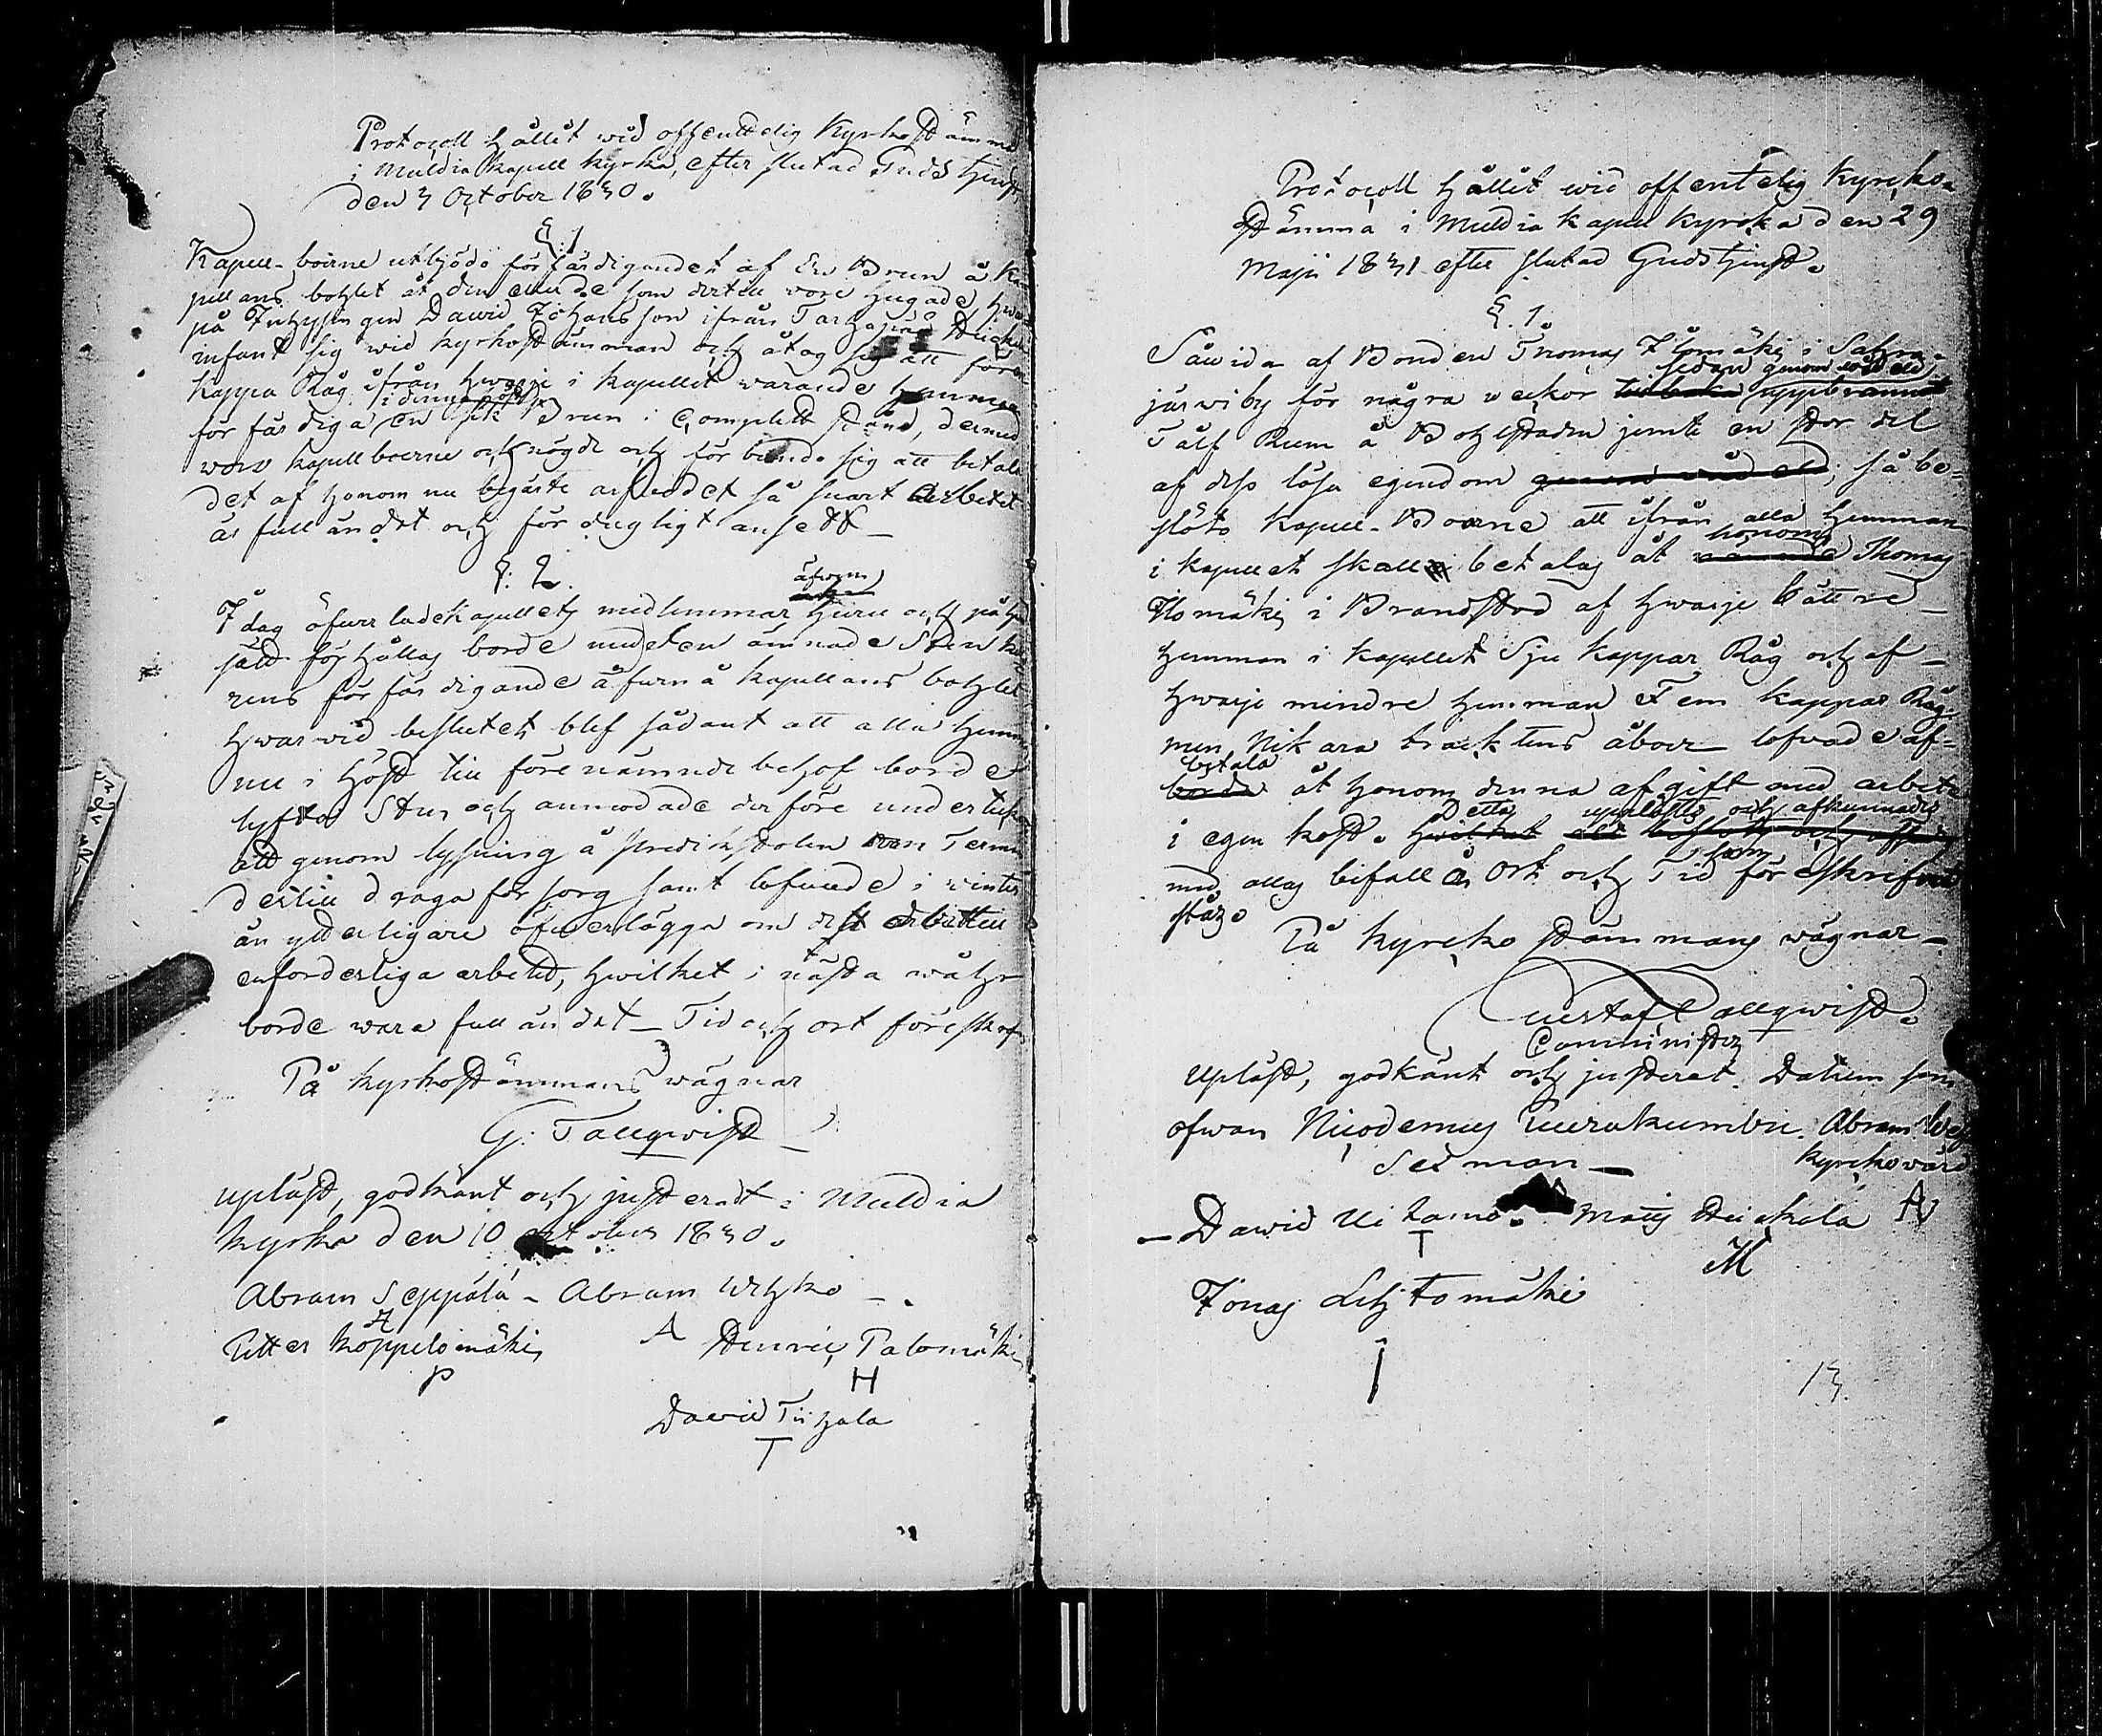 Protocoll hållit wid offenttelig Kyrkostämma
i Muldia Kapell kyrka, efter slutad Gudstjenst
den 3 October 1830.
§ 1
Kapell-boerne utbjödo förfärdigandet af en Brun å Ka-
pellans bohlet åt den eller de som dertill wore hugade, hwar
på Inhysingen Dawid Johansson ifrån Tarhapää
infant sig wid kyrkostämman och åtog sig att för en
kappa Råg ifrån hwarje i kapellet warande hemman
i denna höst
förfärdiga en slik Brun i Complett stånd, dermed
woro kapellboerne ock nögde och förbundo sig att betala
det af honom nu begärte arfwodet så snart arbetet
är fulländat och för dugligt ansedt _
§: 2.
äfwen
I dag öfwerlade Kapellets medlemmar huru och på hwad
sätt förhållas borde med den ämnade Sten
rens förfärdigande äfwen å kapellans bohlet
hwarwid beslutet blef sådant att alla hemman
nu i höst till förenämnde behof borde
lyfta Sten och anmodade derföre
att genom lysning å Predikstolen Termin
dertill draga försorg samt lofwade i winter
än ytterligare öfwerlägga om det dertill
erforderliga arbetet, hwilket i nästa wåhr
borde wara fulländat _ Tid och ort föreskrefne
På kyrkostämmans wägnar
G. Tallqwist
Upläst, godkänt och justeradt i Muldia
kyrka den 10 october 1830.
Abram Seppälä - Abram Wehko -.
A
Petter Koppelomäki A Henric Palomäki
P H
David Tiihala
T
Protocoll hållit wid offentelig Kyrcko-
stämma i Muldia Kapell Kyrcka den 29
Maji 1831 efter slutad Gudstjenst.
§. 1.
Såwida af Bonden Thomas Ilomäki i Sahra-
sedan genom wådeld
järwi by för några weckor tilbaka uppbrännit
Tålf Rum å Bohlstaden jemte en stor del
af dess lösa egendom genom wådeld; så be-
slöts Kapell-Boerne att ifrån alla hemman
honom
i kapellet skall betalas åt Thomas
Ilomäki i Brandstod af hwarje bättre
hemman i kapellet Sju kappar Råg och af _
hwarje mindre hemman Fem kappar Råg
men Nikara tracktens åboer lofwade af-
betala
borda åt honom denna afgift med arbete
Detta upplästes och afkunnades
i egen kost. hwilket beslöts och
som
med allas bifall å Ort och Tid föreskrifwit
står.
På kyrcko stämmans wägnar _
Gustaf Tallqwist.
Comminister
Upläst, godkänt och justerat. Datum som
ofwan Nicodemus Tuurakumbu. Abram Weh
Sexman _ Kyrckovärd
_ Dawid Uitamo. Matts Heickilä A
T M
Jonas Lehtomäki
I
13.